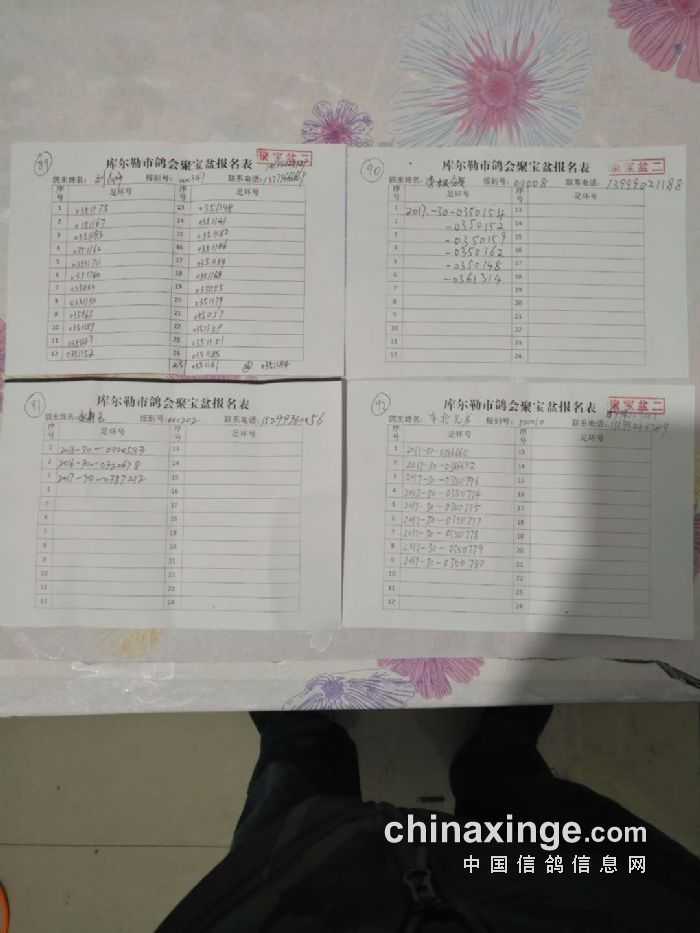 89
库尔勒市鸽会聚宝盆报名表
聚宝盆二
鸽主姓名:
报到号: 000341
联系电话:
序号
足环号
序号
足环号
1 0351175 13 0351148
2 0351167 14 0351141
3 0351183 15 0351182
4 0351162 16 0351186
5 17 0351184
6 0351180 18 0351168
7 19 0351155
8 0351150 20 0351179
9 21 0351157
10 0351189 22 0351159
11 23 0351151
12 0351152 24 0351185
25 0351181 0351184
90
库尔勒市鸽会聚宝盆报名表
聚宝盆二
鸽主姓名:
报到号: 00008
联系电话: 13999021188
序号
足环号
序号
足环号
1 2017.-30-0350154 13
2 -0350152 14
3 -0350159 15
4 -0350162 16
5 -0350148 17
6 -0361314 18
7 19
8 20
9 21
10 22
11 23
12 24
91
库尔勒市鸽会聚宝盆报名表
鸽主姓名:
报到号: 000202
联系电话: 15299960056
序号
足环号
足环号
1 2016-30-0320583 13
2 2016-30-0320678 14
3 2017-30-0387212 15
4 16
5 17
6 18
7 19
8 20
9 21
10 22
11 23
12 24
92
库尔勒市鸽会聚宝盆报名表
聚宝盆二
鸽主姓名:
报到号: 000010
联系电话:
序号
足环号
序号
足环号
1 13
2 14
3 2017-30-0350776 15
4 2017-30-0350774 16
5 2017-30-0350775 17
6 2017-30-0350777 18
7 2017-30-0350778 19
8 2017-30-0350779 20
9 2017-30-0350780 21
10 22
11 23
12 24
chinaxinge.com
中国信鸽信息网